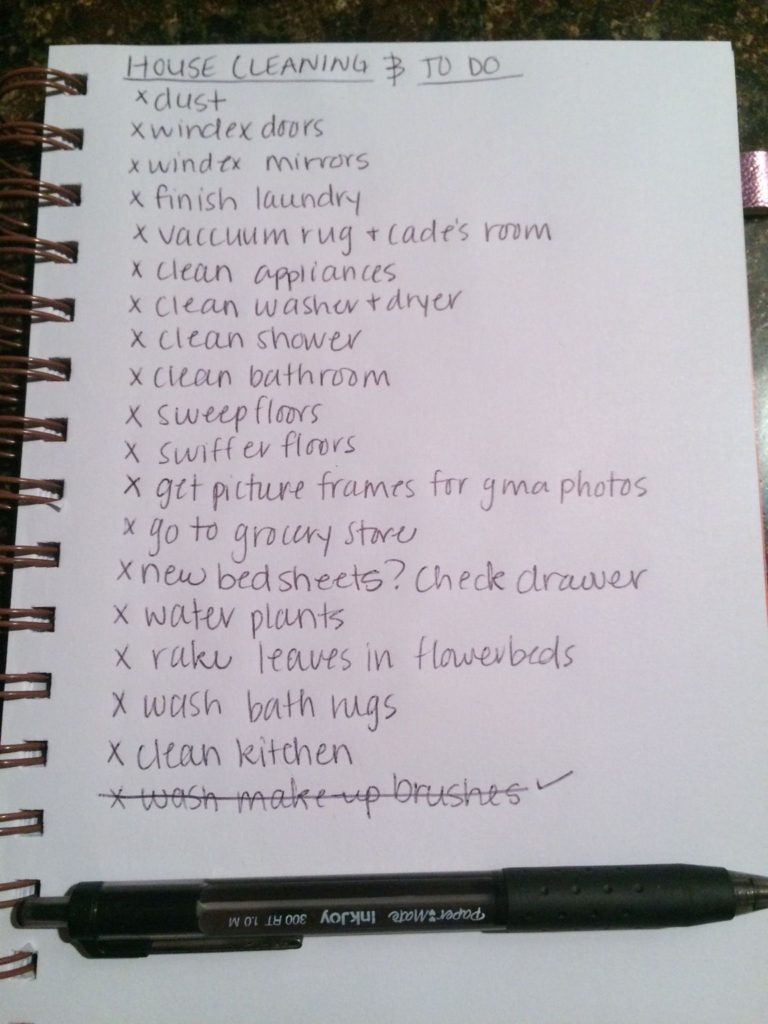 HOUSE CLEANING & TO DO
x dust
x windex doors
x windex mirrors
x finish laundry
x vaccuum rug + cade's room
x clean appliances
x clean washer + dryer
x clean shower
x clean bathroom
x sweep floors
x swiffer floors
x get picture frames for gma photos
x go to grocery store
x new bed sheets? Check drawer
x water plants
x rake leaves in flowerbeds
x wash bath rugs
x clean kitchen
x wash make-up brushes ✓
Paper Mate InkJoy 300 RT 1.0 M